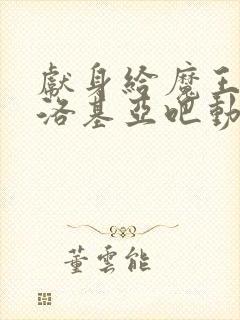 獻身給魔王
洛基亞吧動
董雲能